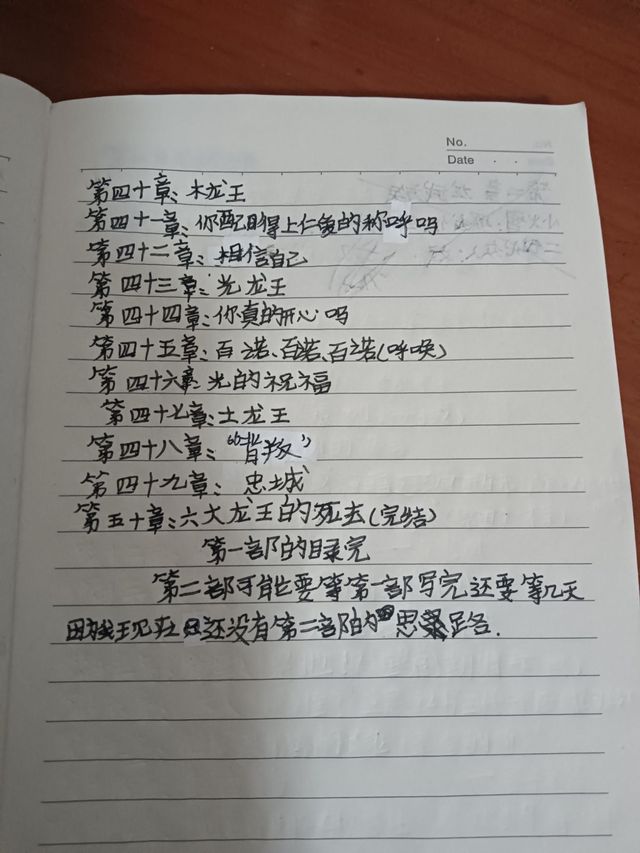 No.
Date
第四十章：木龙王
第四十一章：你配得上仁爱的称呼吗
第四十二章：相信自己
第四十三章：光龙王
第四十四章：你真的开心吗
第四十五章：百诺、百诺、百诺(呼唤)
第四十六章：光的祝福
第四十七章：土龙王
第四十八章：“背叛”
第四十九章：忠城
第五十章：六大龙王的死去(完结)
第一部的目录完
第二部可能要等第一部写完还要等几天
因我现在还没有第二部的思路.